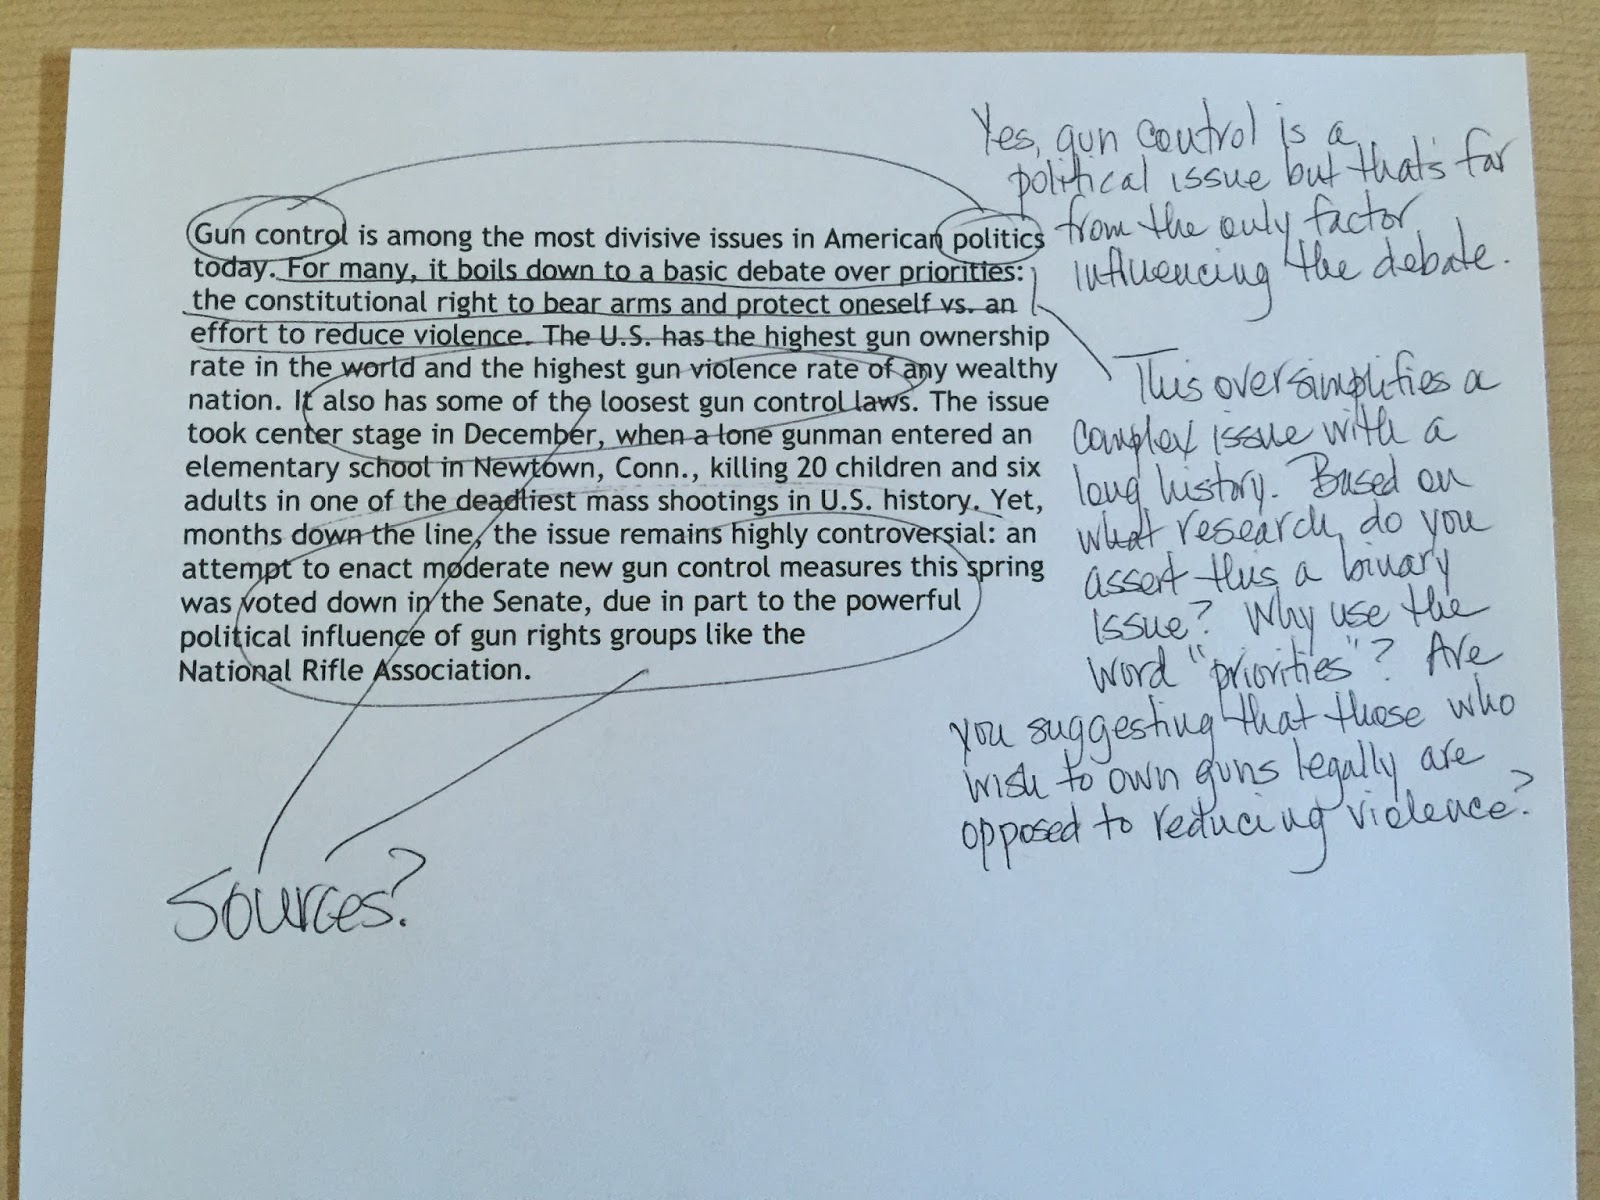 Gun control is among the most divisive issues in American politics
today. For many, it boils down to a basic debate over priorities:
the constitutional right to bear arms and protect oneself vs. an
effort to reduce violence. The U.S. has the highest gun ownership
rate in the world and the highest gun violence rate of any wealthy
nation. It also has some of the loosest gun control laws. The issue
took center stage in December, when a lone gunman entered an
elementary school in Newtown, Conn., killing 20 children and six
adults in one of the deadliest mass shootings in U.S. history. Yet,
months down the line, the issue remains highly controversial: an
attempt to enact moderate new gun control measures this spring
was voted down in the Senate, due in part to the powerful
political influence of gun rights groups like the
National Rifle Association.
Yes, gun control is a
political issue but that's far
from the only factor
influencing the debate.
This oversimplifies a
complex issue with a
long history. Based on
what research, do you
assert this a binary
issue? Why use the
word "priorities"? Are
you suggesting that those who
wish to own guns legally are
opposed to reducing violence?
Sources?